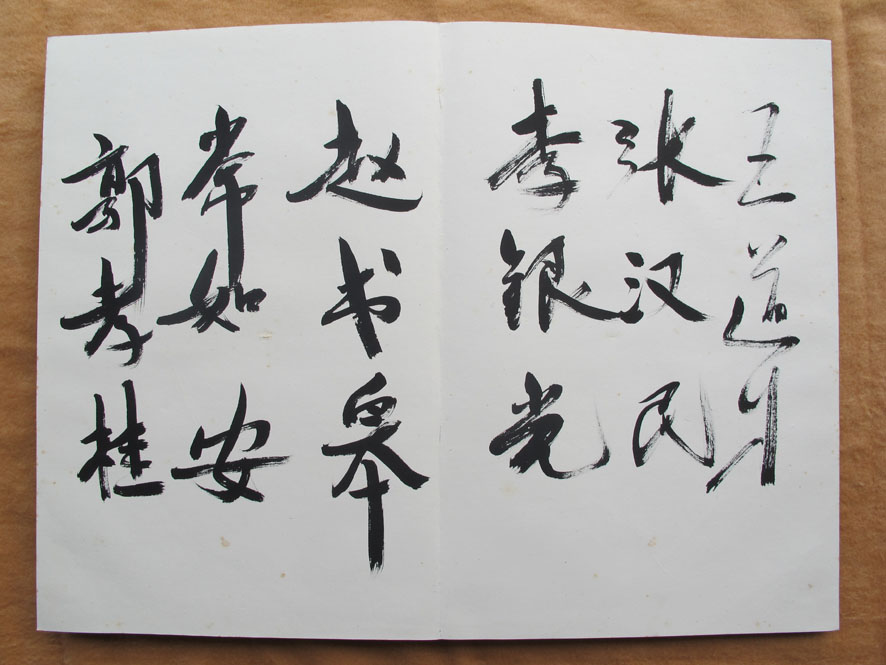 王道
张汉民
李银光
赵书皋
常如安
郭孝桂